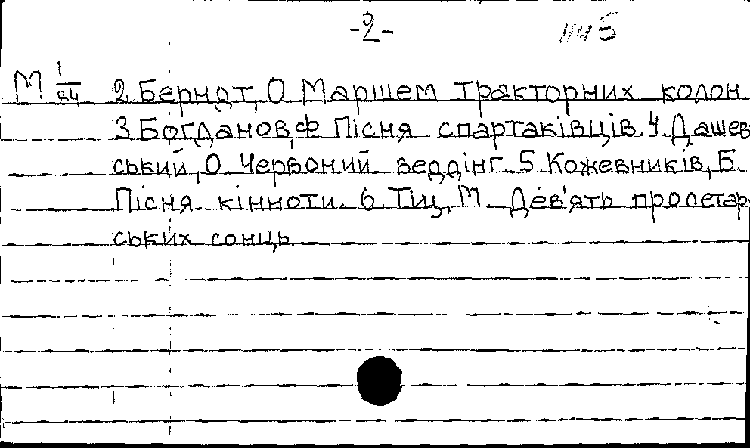 -2-
M 1
2. Бернат, О Маршем тракторних колон
3 Богданов, Ф Пісня спартаківців. 4. Дашев
ський, О. Червоний веддінг. 5. Кожевників, Б.
Пісня кінноти. 6 Тиц, М. Дев'ять пролетар
ських сонць